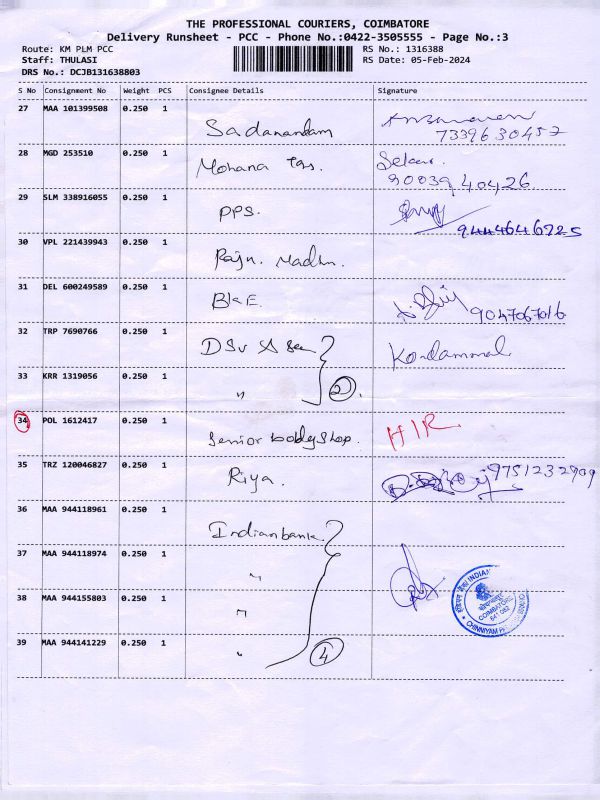 THE PROFESSIONAL COURIERS, COIMBATORE
Delivery Runsheet - PCC - Phone No.:0422-3505555 - Page No.:3
Route: KM PLM PCC RS No.: 1316388
Staff: THULASI RS Date: 05-Feb-2024
DRS No.: DCJB131638803
S No Consignment No Weight PCS Consignee Details Signature
27 MAA 101399508 0.250 1 Sadanandam
7339630457
28 MGD 253510 0.250 1 Mohana Selvam
90039 40426
29 SLM 338916055 0.250 1 PPS.
9444646725
30 VPL 221439943 0.250 1 Raju.
31 DEL 600249589 0.250 1 9047067016
32 TRP 7690766 0.250 1
33 KRR 1319056 0.250 1 " 2
34 POL 1612417 0.250 1 Senior bodyshop. HIR
35 TRZ 120046827 0.250 1 Riya. 9751232909
36 MAA 944118961 0.250 1 Indianbank.
37 MAA 944118974 0.250 1 "
38 MAA 944155803 0.250 1 "
39 MAA 944141229 0.250 1 " 4
COIMBATORE